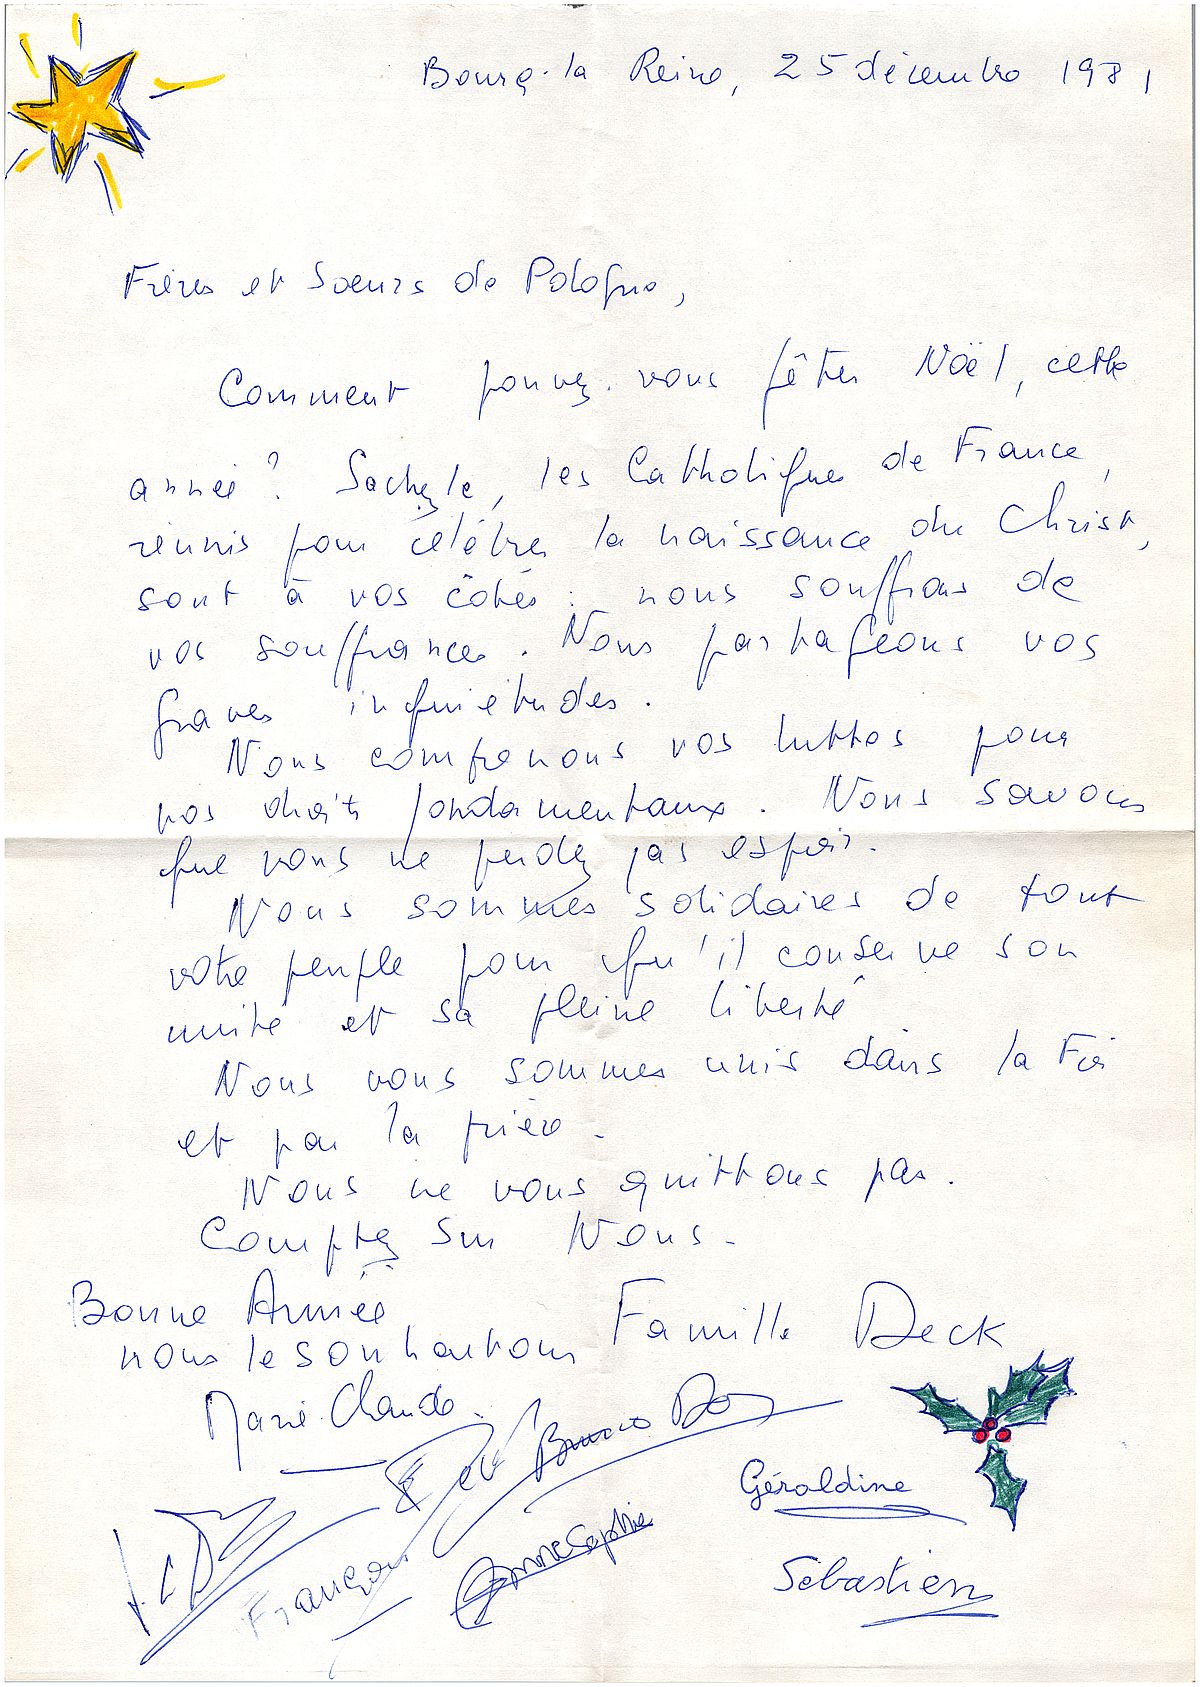 Bourg-la Reine, 25 décembre 1981
Frères et Soeurs de Pologne,
Comment pouvez-vous fêter Noël, cette
année? Sachez le, les Catholiques de France,
réunis pour célébrer la naissance du Christ,
sont à vos côtés : nous souffrons de
vos souffrances. Nous partageons vos
graves inquiétudes.
Nous comprenons vos luttes pour
vos droits fondamentaux. Nous savons
que vous ne perdez pas espoir.
Nous sommes solidaires de tout
votre peuple pour qu'il conserve son
unité et sa pleine liberté
Nous vous sommes unis dans la Foi
et par la prière.
Nous ne vous quittons pas.
Comptez sur Nous.
Bonne Année
nous le souhaitons
Famille Deck
Marie-Claude
Bruno
Géraldine
François
Anne Sophie
Sébastien